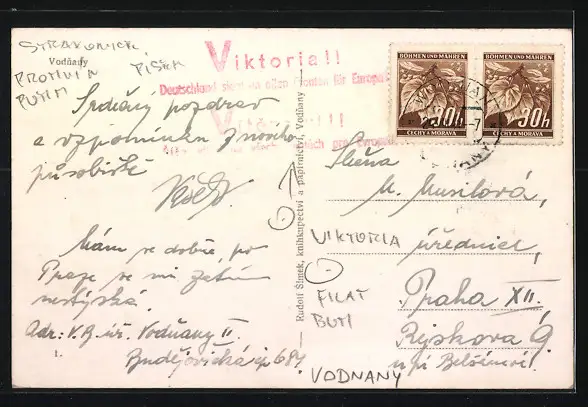 STRAKONICE,
Vodňany
PROTIVIN PÍSEK
PUTIM
Viktoria!!
Deutschland siegt an allen Fronten für Europa
Srdečný pozdrav
a vzpomínku z nového
působiště
Mám se dobře, po
Praze se mi zatím
nestýská.
Adr: V.B. úř. Vodňany II
Budějovická čp 684.
Rudolf Šimek, knihkupectví a papírnictví, Vodňany
BÖHMEN UND MÄHREN
30h
ČECHY A MORAVA
BÖHMEN UND MÄHREN
30h
ČECHY A MORAVA
Slečna
M. Musilová,
úřednice,
Praha XII.
VIKTORIA
FILAT
BUTI
VODNANY